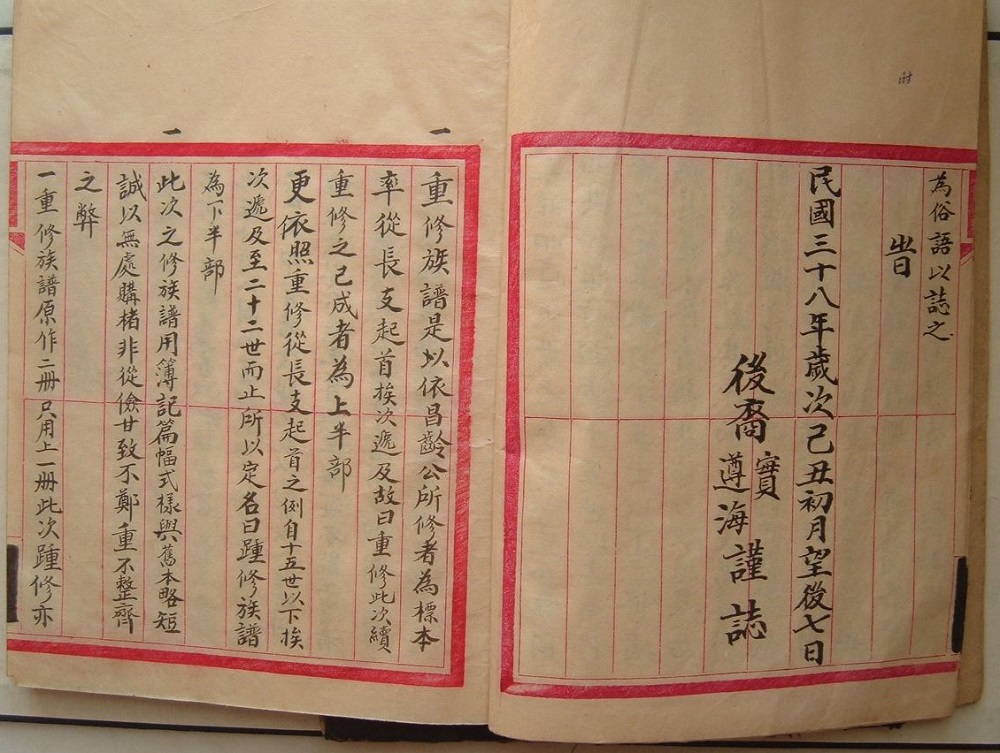 為俗語以誌之
旹
民國三十八年歲次己丑初月望後七日
後裔
實
遵海謹誌
一
重修族譜是以依昌齡公所修者為標本
率從長支起首挨次遞及故曰重修此次續
重修之已成者為上半部
更依照重修從長支起首之例自十五世以下挨
次遞及至二十二世而止所以定名曰踵修族譜
為下半部
一
此次之修族譜用簿記篇幅式樣與舊本略短
誠以無處購楮非從儉甘致不鄭重不整齊
之弊
一重修族譜原作二冊只用上一冊此次踵修亦